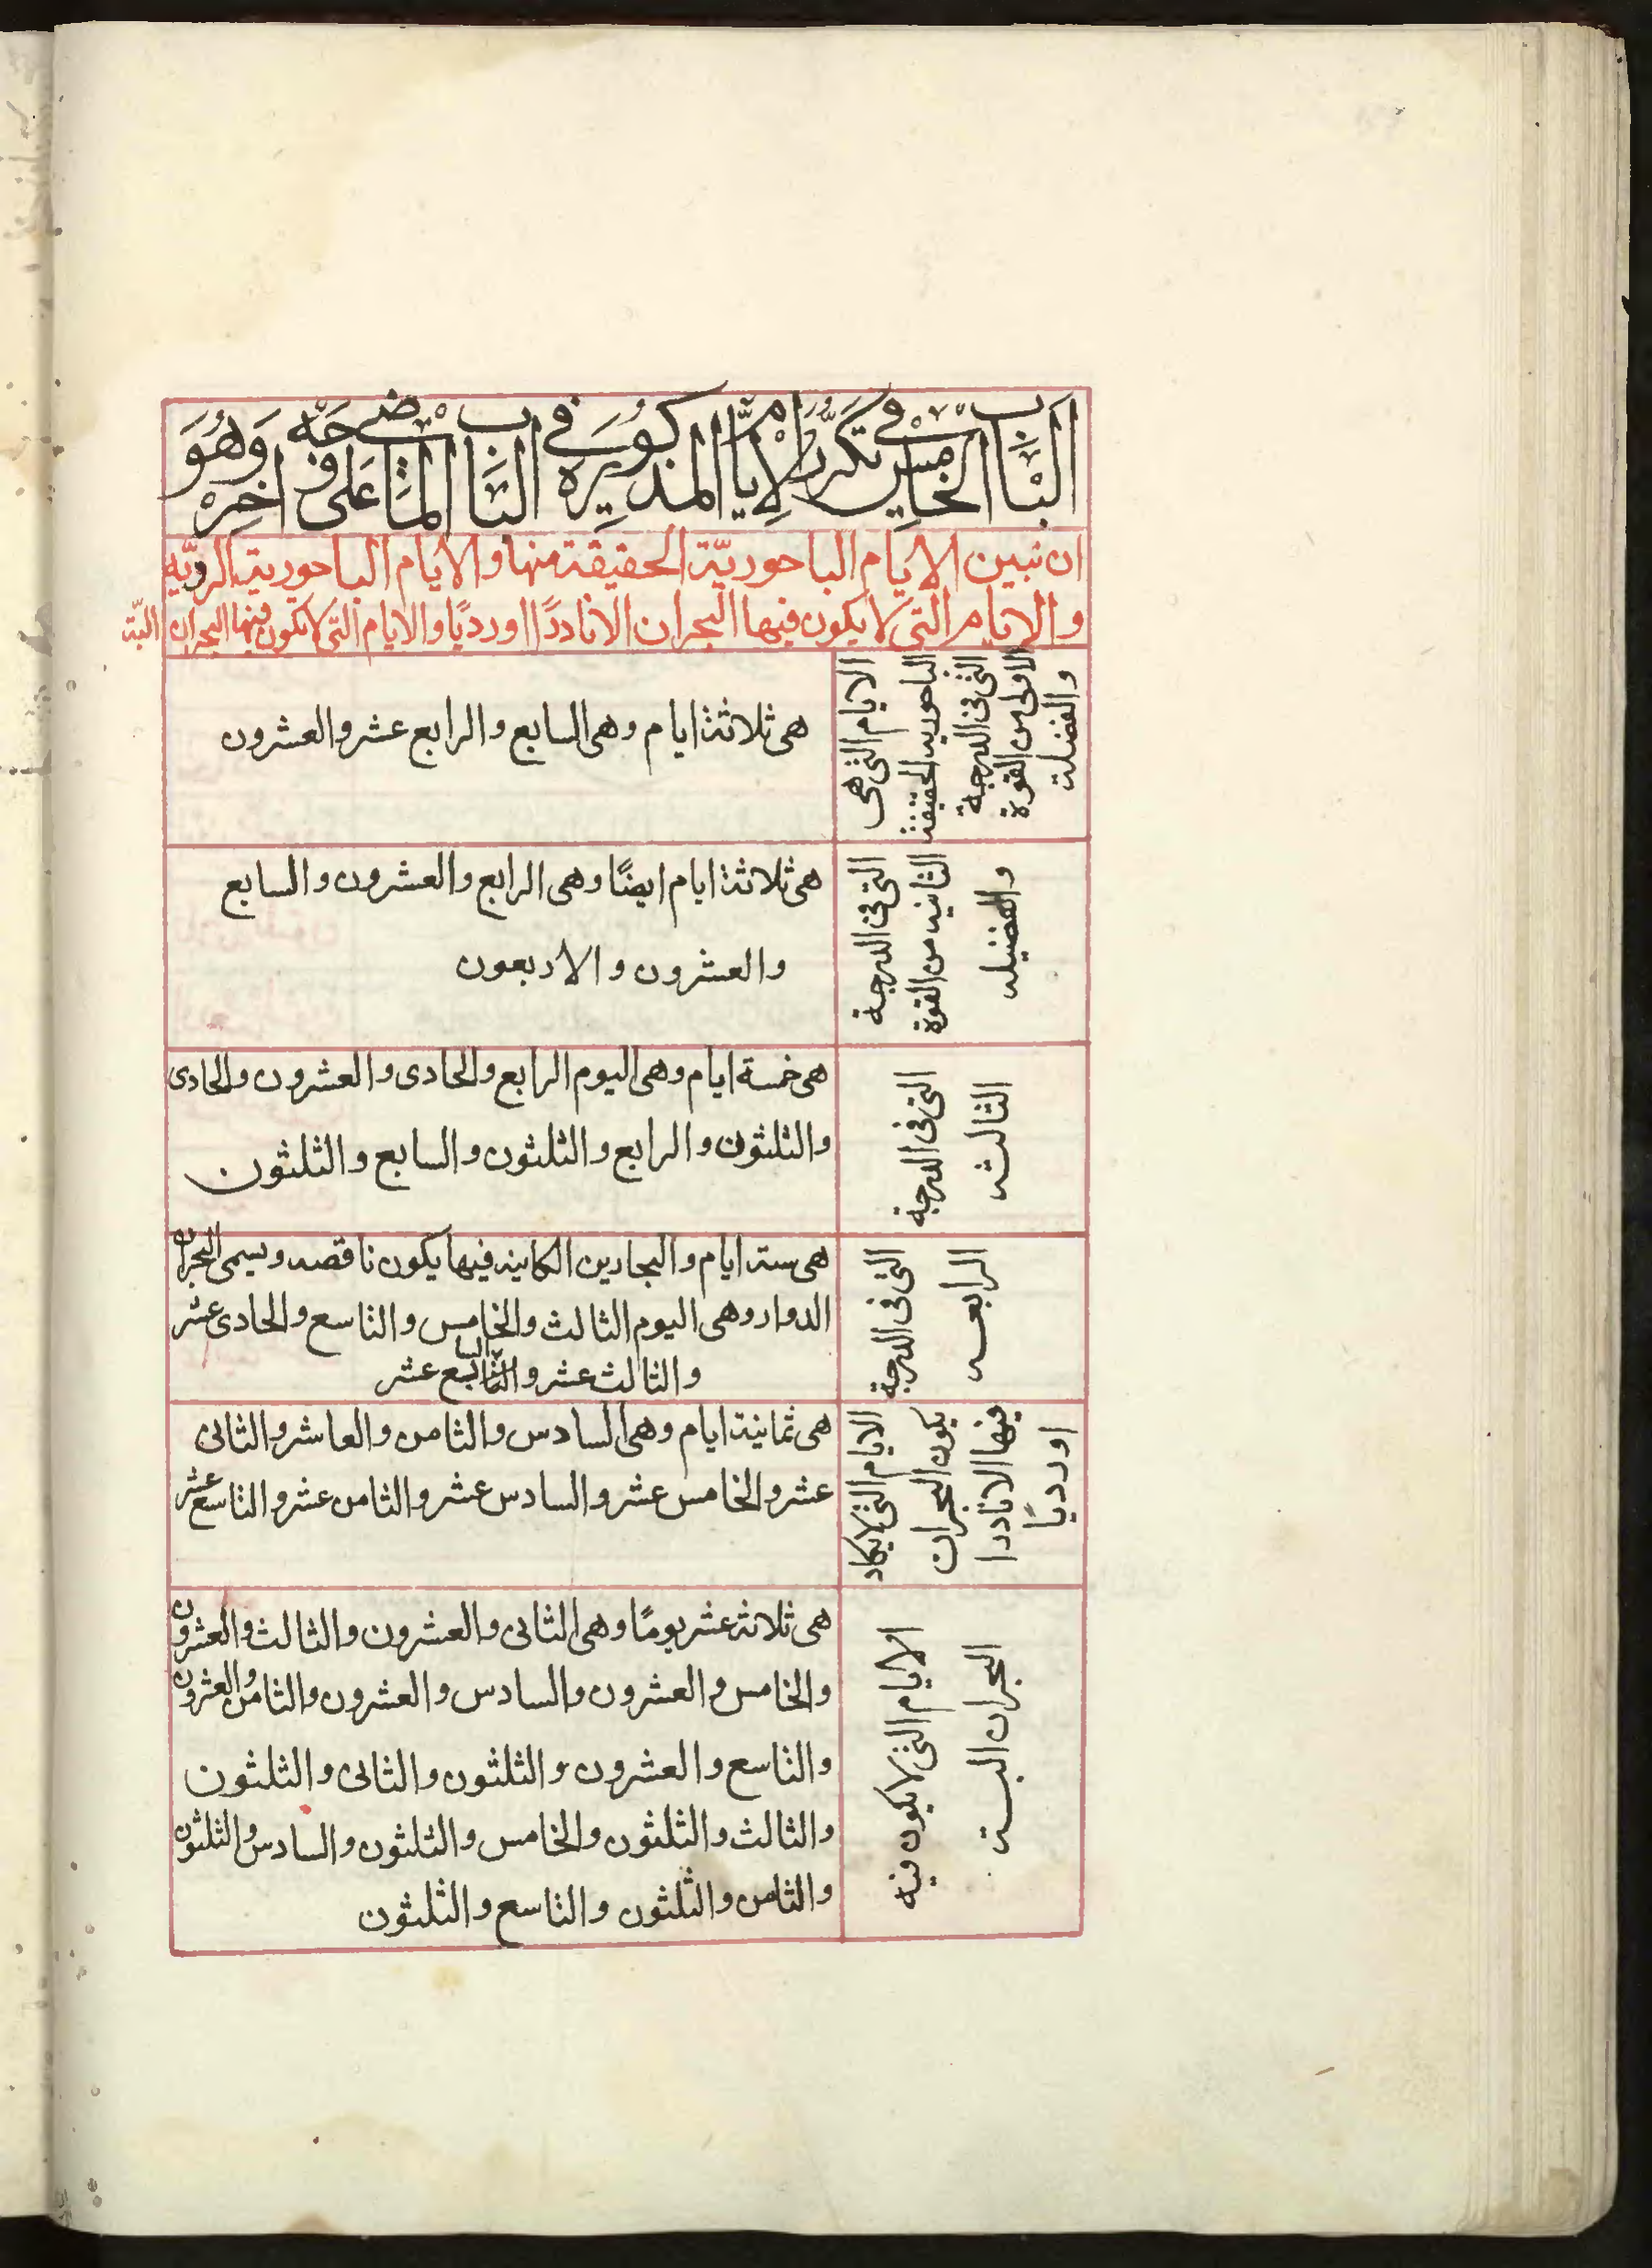 الباب الخامس في تكرير الايام المذكورة في الباب الماضي على جهة وهو اخر
ان نبين الايام الباحورية الحقيقة منها والايام الباحورية الردّيه
والايام التي لا يكون فيها البحران الا نادرًا او رديًا والايام التي لا تكون فيها البحران البتة
الايام التي هي
الباحورية الحقيقة
التي في الدرجة
الاولى من القوة
والفضلة
هي ثلاثة ايام وهي السابع والرابع عشر والعشرون
التي في الدرجة
الثانيه من القوة
والفضيله
هي ثلاثة ايام ايضًا وهي الرابع والعشرون والسابع
والعشرون والاربعون
التي في الدرجة
الثالثه
هي خمسة ايام وهي اليوم الرابع والحادى والعشرون والحادى
والثلثون والرابع والثلثون والسابع والثلثون
التي في الدرجة
الرابعه
هي ستة ايام والبحارين الكاينه فيها يكون ناقصه ويسمى البحران
الدوار وهي اليوم الثالث والخامس والتاسع والحادى عشر
والثالث عشر والسابع عشر
الايام التي لا يكاد
يكون البحران
فيها الا نادرا
او رديًا
هي ثمانية ايام وهي السادس والثامن والعاشر والثانى
عشر والخامس عشر والسادس عشر والثامن عشر والتاسع عشر
الايام التي لا يكون فيه
البحران البتة
هي ثلاثة عشر يومًا وهي الثانى والعشرون والثالث والعشرون
والخامس والعشرون والسادس والعشرون والثامن والعشرون
والتاسع والعشرون والثلثون والثانى والثلثون
والثالث والثلثون والخامس والثلثون والسادس والثلثون
والثامن والثلثون والتاسع والثلثون